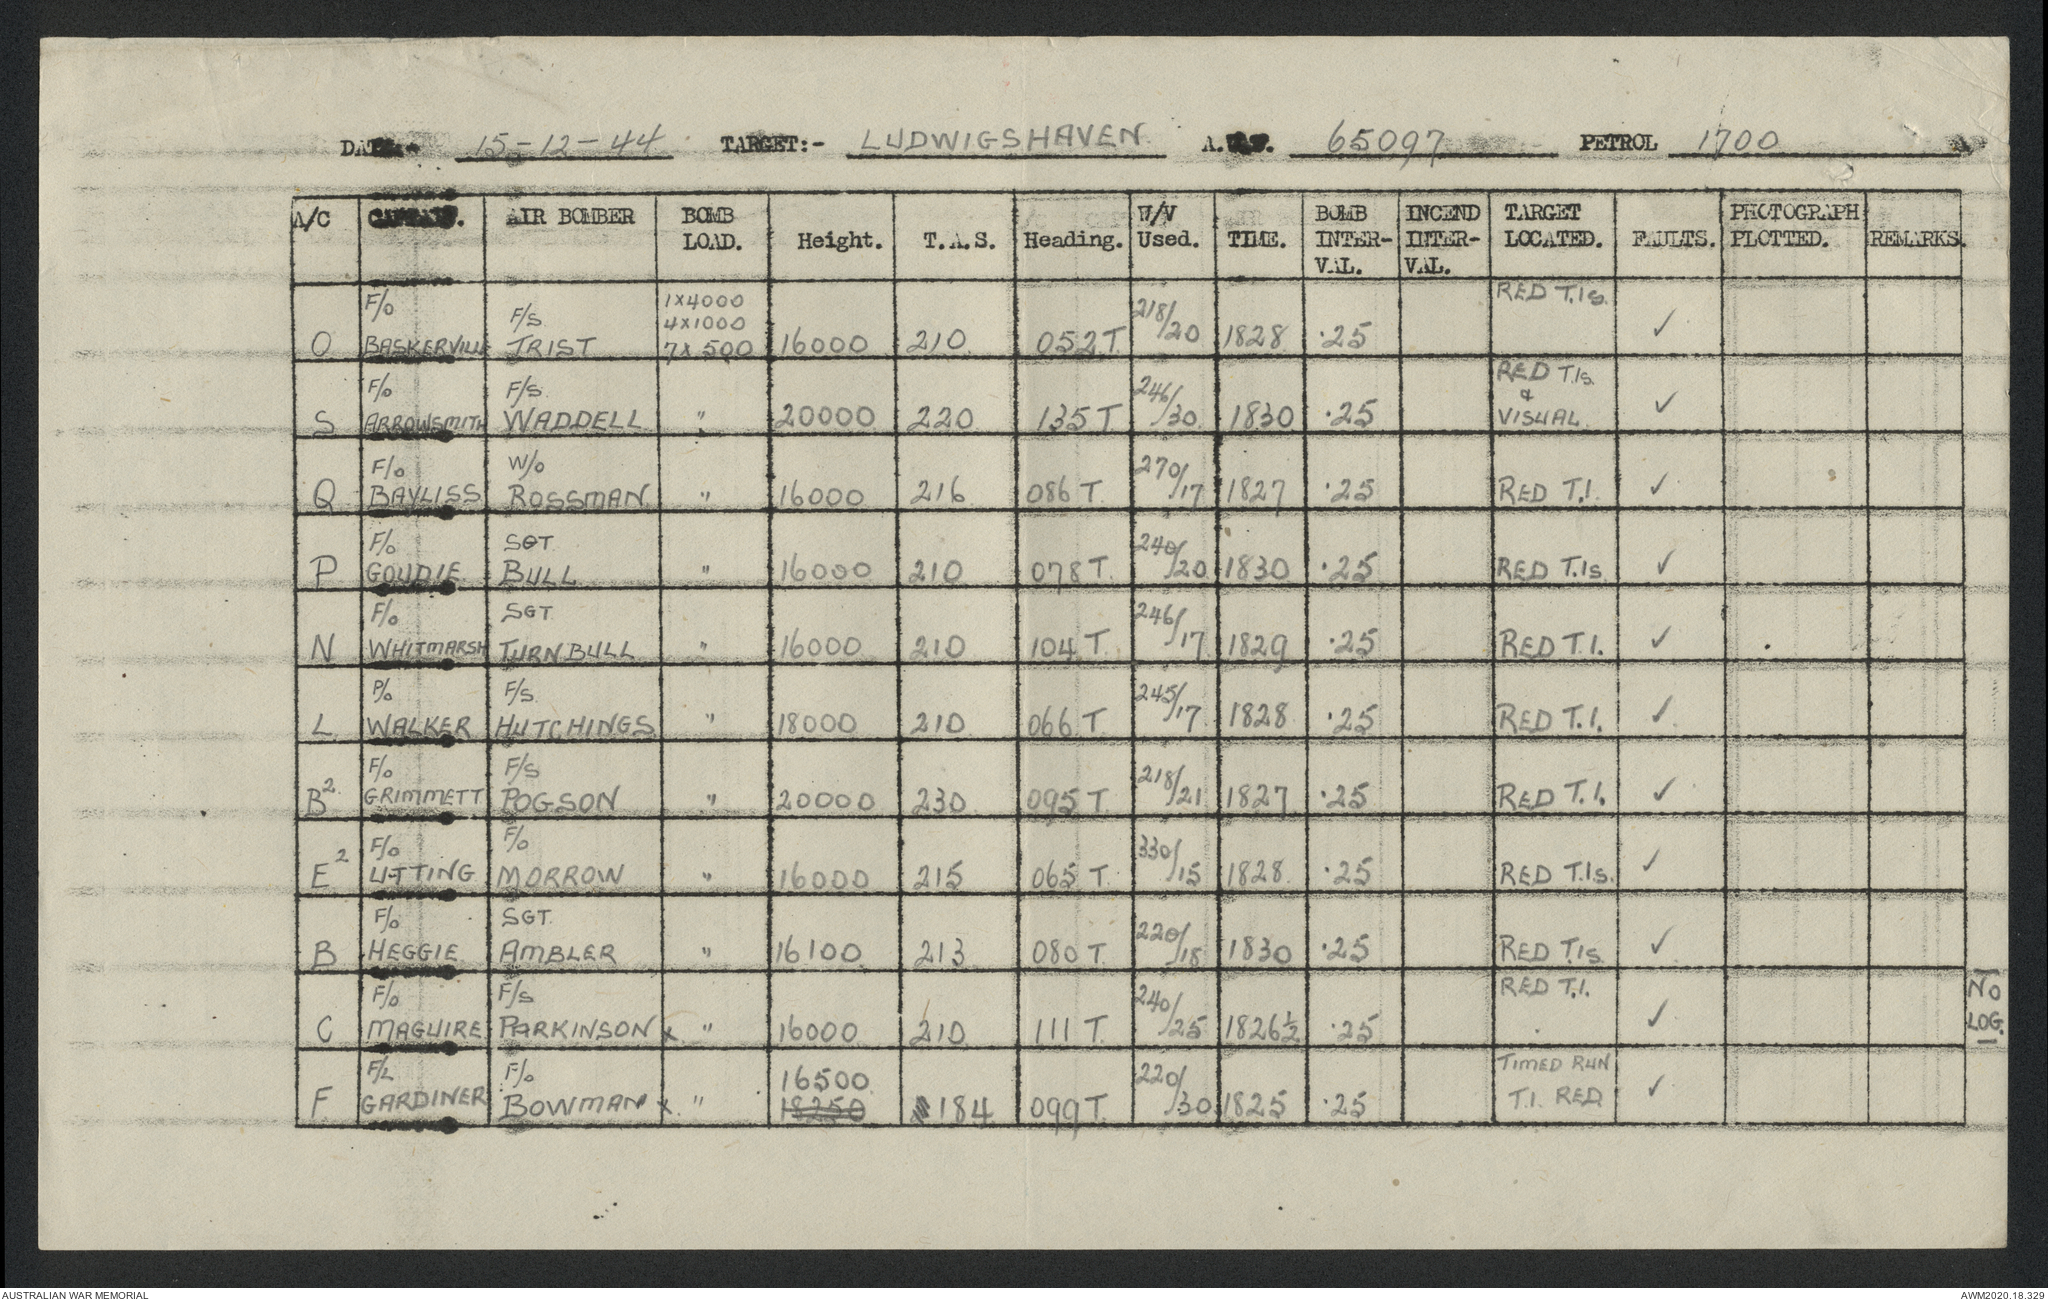 DATE:- 15-12-44 TARGET:- LUDWIGSHAVEN A. 65097 PETROL 1700
A/C CAPTAIN. AIR BOMBER BOMB LOAD. Height. T.A.S. Heading. W/V Used. TIME. BOMB INTER-VAL. INCEND INTER-VAL. TARGET LOCATED. FAULTS. PHOTOGRAPH PLOTTED. REMARKS.
O F/O BASKERVILLE F/S TRIST 1x4000 4x1000 7x500 16000 210 052T 218/20 1828 .25 RED T.Is. ✓
S F/O ARROWSMITH F/S WADDELL " 20000 220 135T 246/30 1830 .25 RED T.Is. & VISUAL ✓
Q F/O BAYLISS W/O ROSSMAN " 16000 216 086 T 270/17 1827 .25 RED T.I. ✓
P F/O GOUDIE SGT BULL " 16000 210 078 T 240/20 1830 .25 RED T.Is ✓
N F/O WHITMARSH SGT TURNBULL " 16000 210 104 T 246/17 1829 .25 RED T.I. ✓
L P/O WALKER F/S. HUTCHINGS " 18000 210 066 T 245/17 1828 .25 RED T.I. ✓
B2 F/O GRIMMETT F/S POGSON " 20000 230 095 T 218/21 1827 .25 RED T.I. ✓
E2 F/O UTTING F/O MORROW " 16000 215 065 T 330/15 1828 .25 RED T.Is. ✓
B F/O HEGGIE SGT. AMBLER " 16100 213 080 T 220/18 1830 .25 RED T.Is ✓
C F/O MAGUIRE F/S PARKINSON x " 16000 210 111 T 240/25 1826½ .25 RED T.I. ✓ NO LOG.
F F/L GARDINER F/O BOWMAN x " 16500 18250 184 099T 220/30 1825 .25 TIMED RUN T.I. RED ✓
AUSTRALIAN WAR MEMORIAL AWM2020.18.329